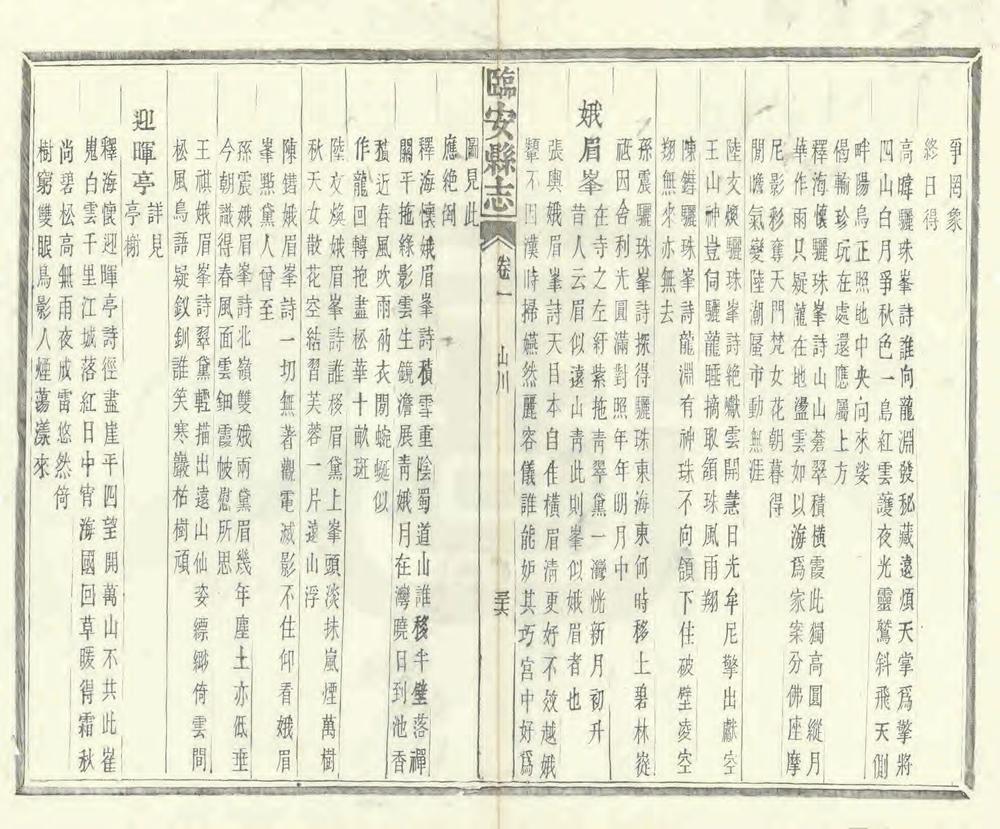 爭罔象
終日得
高暐驪珠峯詩誰向龍淵發秘藏遠煩天掌爲擎將
四山白月爭秋色一鳥紅雲護夜光靈鷲斜飛天側
畔陽烏正照地中央向來娑
偈輸珍玩在處還應屬上方
釋海懷驪珠峯詩山山蒼翠積橫霞此獨高圓縱月
華作雨只疑龍在地盪雲如以海爲家案分佛座摩
尼影彩奪天門梵女花朝暮得
閒瞻氣變陸潮蜃市動無涯
陸文煥驪珠峯詩絶巘雲開慧日光牟尼擎出獻空
王山神豈伺驪龍睡摘取頷珠風雨翔
陳鍇驪珠峯詩龍淵有神珠不向頷下住破壁凌空
翔無來亦無去
孫震驪珠峯詩探得驪珠東海東何時移上碧林從
祗因舍利光圓滿對照年年明月中
娥眉峯 在寺之左紆紫拖青翠黛一灣恍新月初升
昔人云眉似遠山靑此則峯似娥眉者也
張輿娥眉峯詩天目本自佳橫眉淸更好不效越娥
顰不因漢時掃嫣然麗容儀誰能妒其巧宮中好爲
臨安縣志 卷一 山川 三六
圖見此
應絶倒
釋海懷娥眉峯詩積雪重陰蜀道山誰移半壁落禪
關平拖綠影雲生鏡澹展靑娥月在灣曉日到池香
積近春風吹雨衲衣閒蜿蜒似
作龍回轉抱盡松華十畝斑
陸文煥娥眉峯詩誰掃眉黛上峯頭淡抹嵐煙萬樹
秋天女散花空結習芙蓉一片遠山浮
陳鍇娥眉峯詩一切無著觀電滅影不住仰看娥眉
峯㸃黛人曾至
孫震娥眉峯詩北嶺雙娥兩黛眉幾年塵土亦低垂
今朝識得春風面雲鈿霞帔慰所思
王祺娥眉峯詩翠黛輕描出遠山仙姿縹緲倚雲間
松風鳥語疑釵釧誰笑寒巖枯樹頑
迎暉亭 詳見
亭榭
釋海懷迎暉亭詩徑盡崖平四望開萬山不共此崔
嵬白雲千里江城落紅日中宵海國回草暖得霜秋
尚碧松高無雨夜成雷悠然倚
樹窮雙眼鳥影人煙蕩漾來